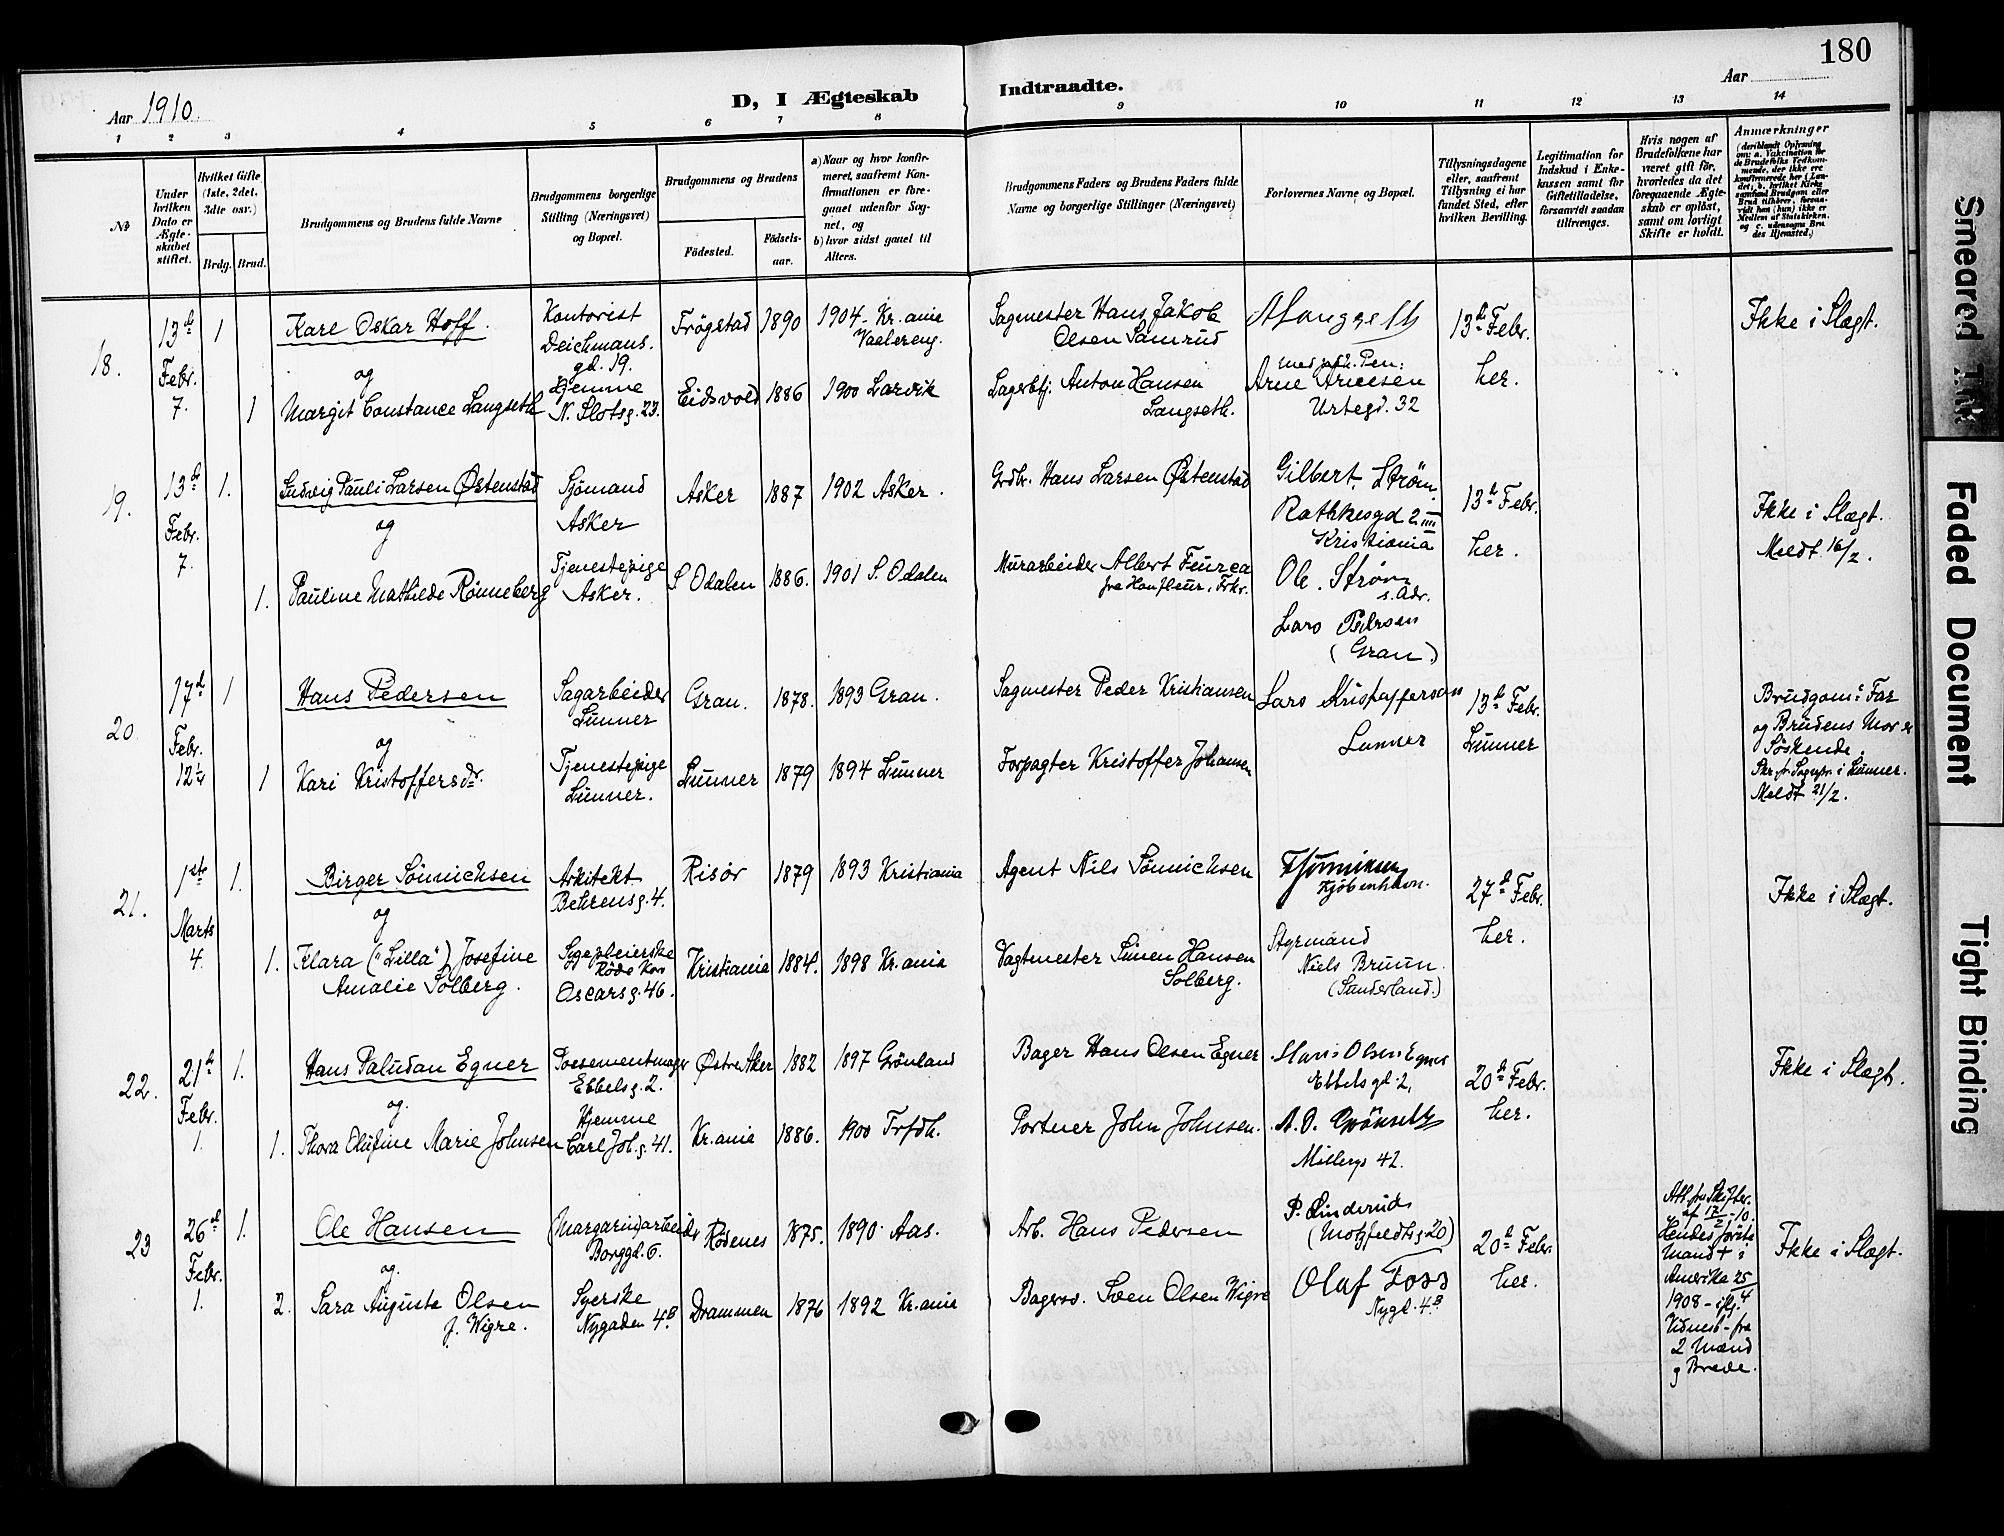 180
Aar 1910.
D, I Ægteskab
Indtraadte.
Aar
1 2 3 4 5 6 7 8 9 10 11 12 13 14
№
Under hvilken Dato er Ægteskabet stiftet.
Hvilket Gifte (1ste, 2det, 3die osv.)
Brdg. Brud.
Brudgommens og Brudens fulde Navne
Brudgommens borgerlige Stilling (Næringsvei) og Bopæl.
Brudgommens og Brudens
Fødested.
Fødselsaar.
a) Naar og hvor konfirmeret, saafremt Konfirmationen er foregaaet udenfor Sognet, og
b) hvor sidst gaaet til Alters.
Brudgommens Faders og Brudens Faders fulde Navne og borgerlige Stillinger (Næringsvei)
Forlovernes Navne og Bopæl.
Tillysningsdagene eller, saafremt Tillysning ei har fundet Sted, efter hvilken Bevilling.
Legitimation for Indskud i Enkekassen samt for Giftetilladelse, forsaavidt saadan tiltrænges.
Hvis nogen af Brudefolkene har været gift før, hvorledes da det foregaaende Ægteskab er opløst, samt om lovligt Skifte er holdt.
Anmærkninger
18.
13de Febr. 7.
1
Karl Oskar Hoff.
Kontorist
Deichmans.
gd. 19.
Trögstad
1890
1904 - Kr.ania
Vaalereng.
Sagmester Hans Jakob
Olsen Samrud
13de Febr.
her.
Ikke i Slægt.
og
1
Margit Constance Langseth
Hjemme
N. Slotsg. 23.
Eidsvold
1886
1900 Larvik
Lagerbtj. Anton Hansen
Langseth.
Arne Arnesen
Urtegd. 32
19.
13de Febr. 7.
1.
Ludvig Pauli Larsen Østenstad
Sjömand
Asker
Asker
1887
1902 Asker.
Grdbr. Hans Larsen Østenstad
Gilbert Strøm
Rathkesgd 2 III
Kristiania
13de Febr.
her.
Ikke i Slægt.
Meldt 16/2.
og
1.
Pauline Mathilde Rønneberg
Tjenestepige
Asker.
S Odalen
1886.
1901 S. Odalen
Murarbeider Albert
fra Honfleur, Frkr.
Ole. Strøm
s. Adr.
Lars Pedersen
(Gran)
20
17de Febr. 12½
1
Hans Pedersen
Sagarbeider
Lunner
Gran.
1878.
1893 Gran.
Sagmester Peder Kristiansen
Lars Kristoffersen
Lunner
13de Febr.
Lunner
Brudgoms Far
og Brudens Mor er
Söskende.
Skr. fr. Sognepr. i Lunner.
Meldt 21/2.
og
1
Kari Kristoffersdr.
Tjenestepige
Lunner.
Lunner
1879
1894 Lunner
Forpagter Kristoffer Johansen
21.
1ste Marts 4.
1.
Birger Sönnichsen
Arkitekt
Behrensg. 4.
Risör
1879
1893 Kristiania
Agent Nils Sönnichsen
Kjöbenhavn.
27de Febr.
her.
Ikke i Slægt.
og
1.
Klara ("Lilla") Josefine
Amalie Solberg.
Sygepleierske
Röde Kors
Oscarsg. 46.
Kristiania
1884.
1898 Kr.ania
Vagtmester Simen Hansen
Solberg.
Styrmand
Niels Bruun.
(Sunderland.)
22.
21de Febr. 1.
1.
Hans Paludan Egner
Posementmager
Ebbelsg. 2.
Østre Aker
1882
1897 Grönland
Bager Hans Olsen Egner
Hans Olsen Egner
Ebbelsgd. 2,
20de Febr.
her.
Ikke i Slægt.
og.
1.
Thora Olufine Marie Johnsen
Hjemme
Carl Joh. g. 41.
Kr.ania
1886.
1900 Trfdh.
Portner John Johnsen.
Möllergt 42.
23
26de Febr. 1.
1.
Ole Hansen
(Margarin)arbeider
Borggd. 6.
Rödenes
1875.
1890 Aas.
Arb. Hans Pedersen
P. Linderud
(Motzfeldtsg 20)
20de Febr.
her.
Att. fra Skifter.
af 17/2 - 10.
Hendes första
Mand + i
Amerika 25/4
1908 - iflg.
Vidnesb - fra
2 Mænd
g Brede.
Ikke i Slægt.
og.
2.
Sara Auguste Olsen
f. Wigre.
Syerske
Nygaden 4B
Drammen
1876
1892 Kr.ania
Bagersv. Sven Olsen Wigre
Olaf Foss
Nygd. 4B
Smeared Ink
Faded Document
Tight Binding